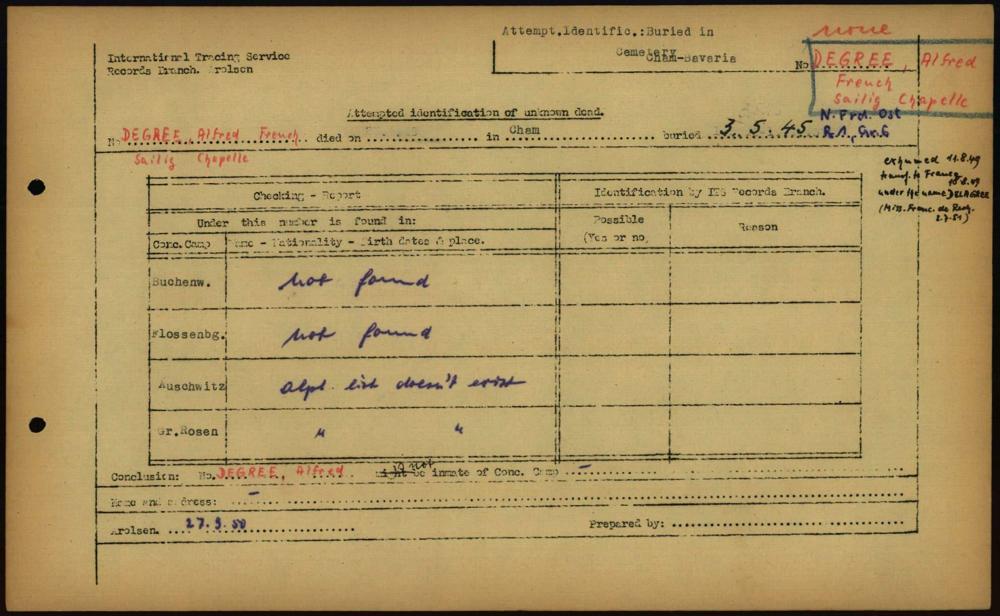 Attempt.Identific.:Buried in
Cemetery
Cham-Bavaria
none
No DEGREE, Alfred
French
Sailig Chapelle
International Tracing Service
Records Branch. Arolsen
Attempted identification of unknown dead.
N. Prot. Ost
R.1, Gr.6
No DEGREE, Alfred French died on in Cham buried 3.5.45
Sailig Chapelle
exhumed 11.8.49
transf. to France
18.8.49
under the name DELAGREE
(Miss. Franc. de Rech.
2.7.51)
Checking - Report
Identification by ITS Records Branch.
Under this number is found in:
Possible
(Yes or no)
Reason
Conc.Camp
Name - Nationality - Birth dates & place.
Buchenw. not found
Flossenbg. not found
Auschwitz alph. list doesn't exist
Gr.Rosen " "
Conclusion: No. DEGREE, Alfred might be inmate of Conc. Camp -
is not
Home and address: -
Arolsen. 27.9.50
Prepared by: